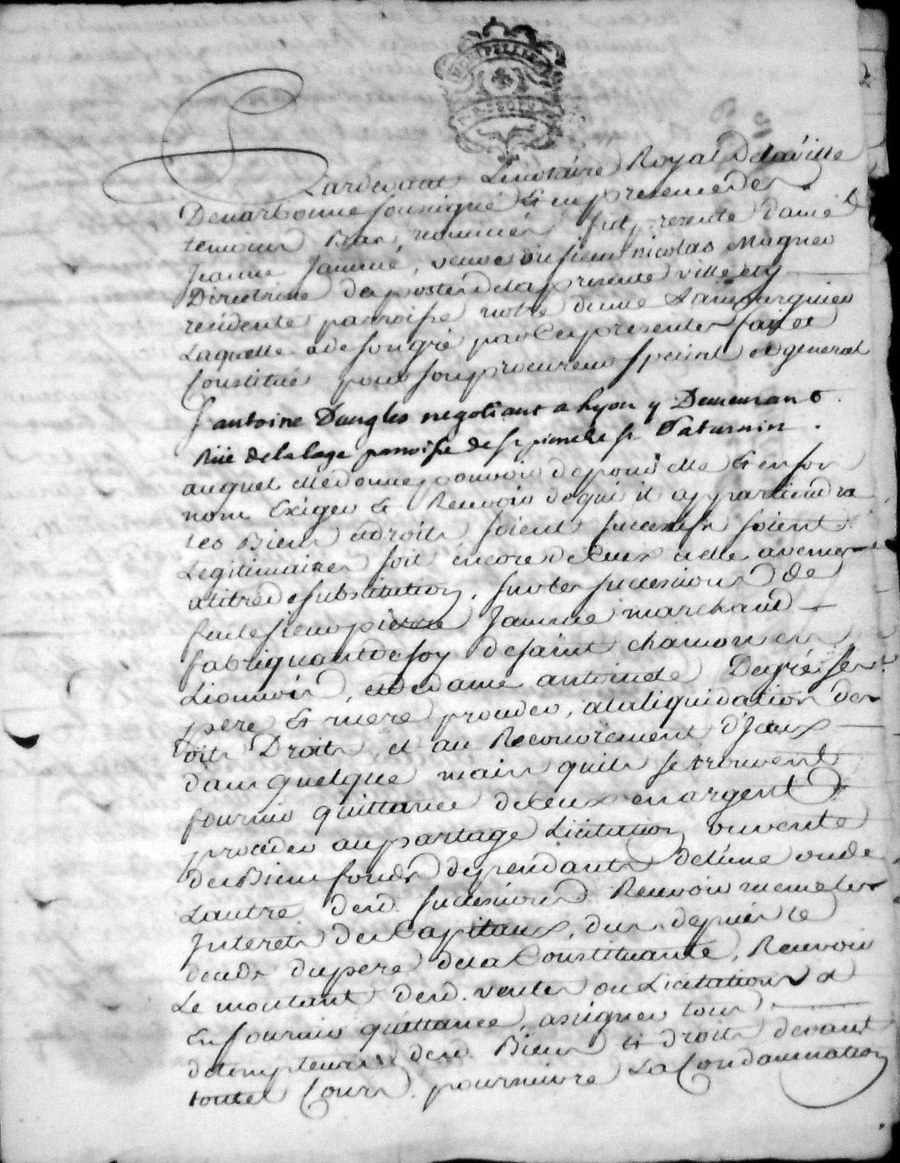 MONTPELLIER
Pardevant Le notaire Royal De la ville
De narbonne soussigné & en presence des
temoins Bas nommés fut presente dame
Jeanne Jaume, veuve du sieur nicolas Magnes
Directrice des postes de la presente ville et y
residente paroisse notre dame Lamourguier
Laquelle a de son gré par Ces presentes fait et
Constitué pour son procureur special et general
Sr antoine Dangles negotiant a Lyon y Demeurant
Rüe de la Cage paroisse de St pierre St Saturnin.
auquel elle donne pouvoir de pour elle & en son
nom Exiger & Recevoir de qui il appartiendra
Les Biens & droits soient successifs soient
Legitimaires soit encore de Ceux a elle avenus
a titre de substitution, sur les successions de
feu le sieur pierre Jaume marchand
fabriquant de soy de saint chamon en
Lionnois, et de dame antoinete
pere & mere proceder, a la liquidation des
dits Droits et au Recouvrement d'Iceux
dans quelque main quils se trouvent
fournir quittance de Ceux en argent &
proceder au partage Licitation ou vente
des Biens fonds dependants de l'une ou de
Lautre desd. successions Recevoir meme les
Interets des Capitaux, dus depuis le
deceds du pere de la Constituante, Recevoir
Le montant desd. ventes ou Licitations &
En fournir quittance, assigner tous
detempteurs desd. Biens & droits devant
toutes Cours poursuivre La Condamnation